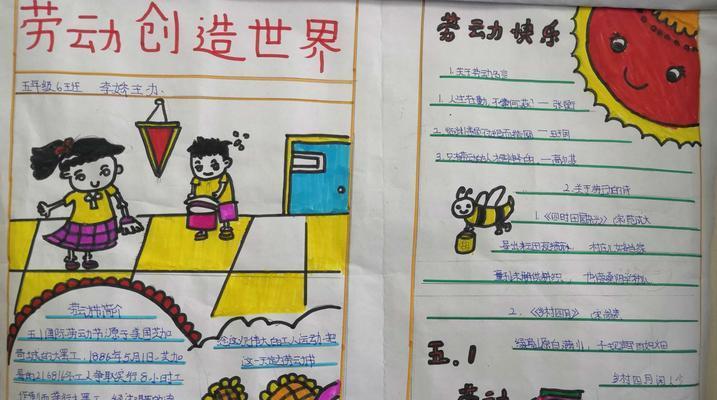 劳动创造世界
五年级6班
劳动节简介
五.1国际劳动节源于美国芝加
哥城的大罢工,1886年5月1日,芝加
哥的21.6816名工
争取实行8小时工
作制而举行大罢工
念这次伟大的工人运动,把
这一天定为劳动节
劳动快乐
1.关于劳动名言
1.人生在勤,不索何获 — 张衡
2.关于劳动的诗
1.《四时田园杂兴》(宋)范成大
昼出耘田夜绩麻 村庄儿女各当家
童孙未解供耕织
2.《乡村四月》
绿遍山原白满川,子规声里雨如烟
乡村四月闲人少
五.1
劳动